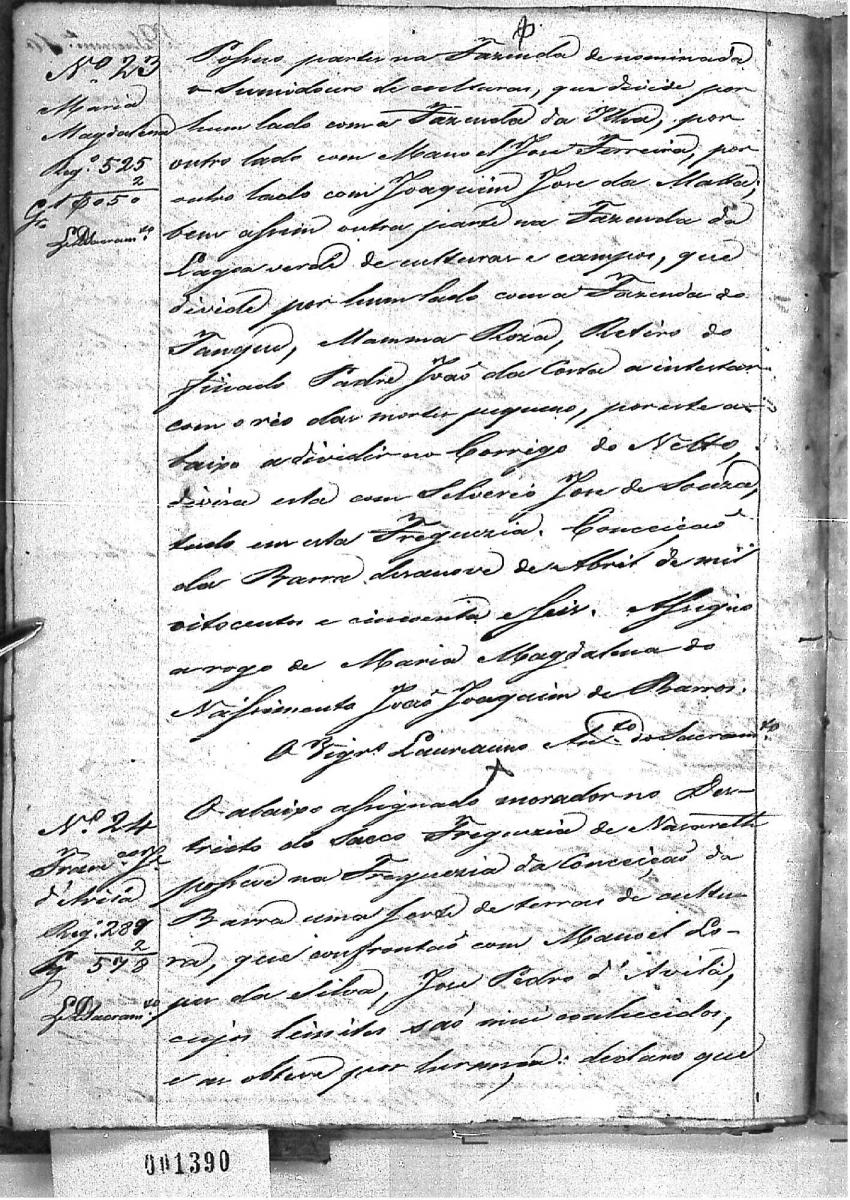 Nº 23
Maria
Magdalena
Reg.º 525
2
1$050
Possuo partes na Fazenda denominada
o Sumidouro de culturas, que divide por
hum lado com a Fazenda da Ilha, por
outro lado com Manoel Jose Ferreira, por
outro lado com Joaquim Jose da Matta;
bem assim outra parte na Fazenda da
Lagoa verde de culturas e campos, que
divide por hum lado com a Fazenda do
Tanque, Mamma Roza, Retiro do
finado Padre Joaõ da Costa a intestar
com o rio das mortes pequeno, por este a-
baixo a dividir no Corrigo do Netto,
diviza esta com Silverio Jose de Souza,
tudo em esta Freguezia. Conceiçaõ
da Barra desanove de Abril de mil
oitocentos e cincoenta e seis. Assigno
a rogo de Maria Magdalena do
Nassimento Joaõ Joaquim de Barros.
O Vigrº Laureanno Antº do Sacramtº
Nº 24
Francº Jº
d'Avila
Reg.º 289
2
Pg 578
O abaixo assignado morador no Des-
tricto do Sacco Freguezia de Nasareth
possue na Freguezia da Conceiçaõ da
Barra uma sorte de terras de cultu-
ra, que confrontaõ com Manoel Lo-
pes da Silva, Jose Pedro d'Avila,
cujos limites saõ mui conhecidos,
e as obteve por heransa: declaro que
001390